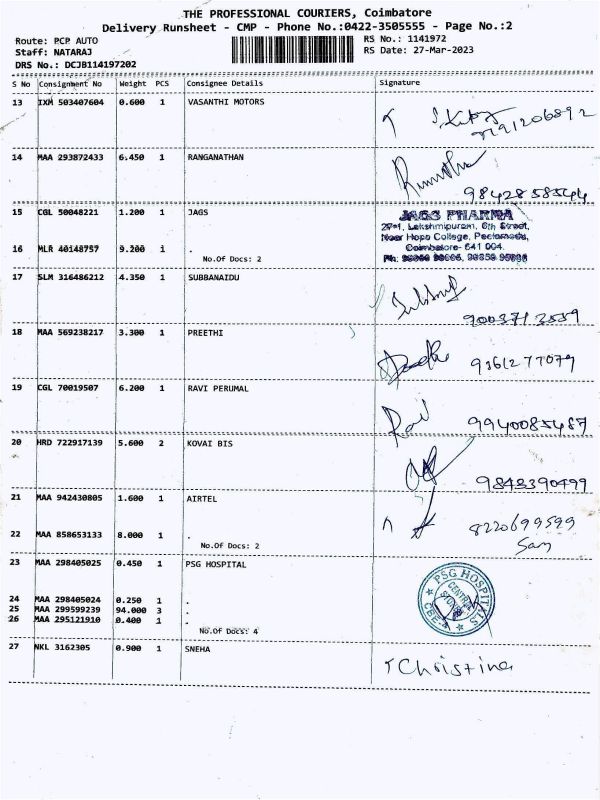 THE PROFESSIONAL COURIERS, Coimbatore
Delivery Runsheet - CMP - Phone No.:0422-3505555 - Page No.:2
Route: PCP AUTO
RS No.: 1141972
Staff: NATARAJ
RS Date: 27-Mar-2023
DRS No.: DCJB114197202
S No Consignment No Weight PCS Consignee Details Signature
13 IXM 503407604 0.600 1 VASANTHI MOTORS
14 MAA 293872433 6.450 1 RANGANATHAN
9842858544
15 CGL 50048221 1.200 1 JAGS
JAGS PHARMA
Lakshmipuram, 6th Street,
Near Hope College, Peelamedu,
Coimbatore- 641 004.
16 MLR 40148757 9.200 1 .
No.Of Docs: 2
17 SLM 316486212 4.350 1 SUBBANAIDU
9003713559
18 MAA 569238217 3.300 1 PREETHI
9361277079
19 CGL 70019507 6.200 1 RAVI PERUMAL
Ravi 9940085487
20 HRD 722917139 5.600 2 KOVAI BIS
9848390499
21 MAA 942430805 1.600 1 AIRTEL
8220699599
22 MAA 858653133 8.000 1 .
Sam
No.Of Docs: 2
23 MAA 298405025 0.450 1 PSG HOSPITAL
PSG HOSPITALS
CENTRAL
STORES
CBE-4
24 MAA 298405024 0.250 1 .
25 MAA 299599239 94.000 3 .
26 MAA 295121910 0.400 1 .
No.Of Docs: 4
27 NKL 3162305 0.900 1 SNEHA
Christina